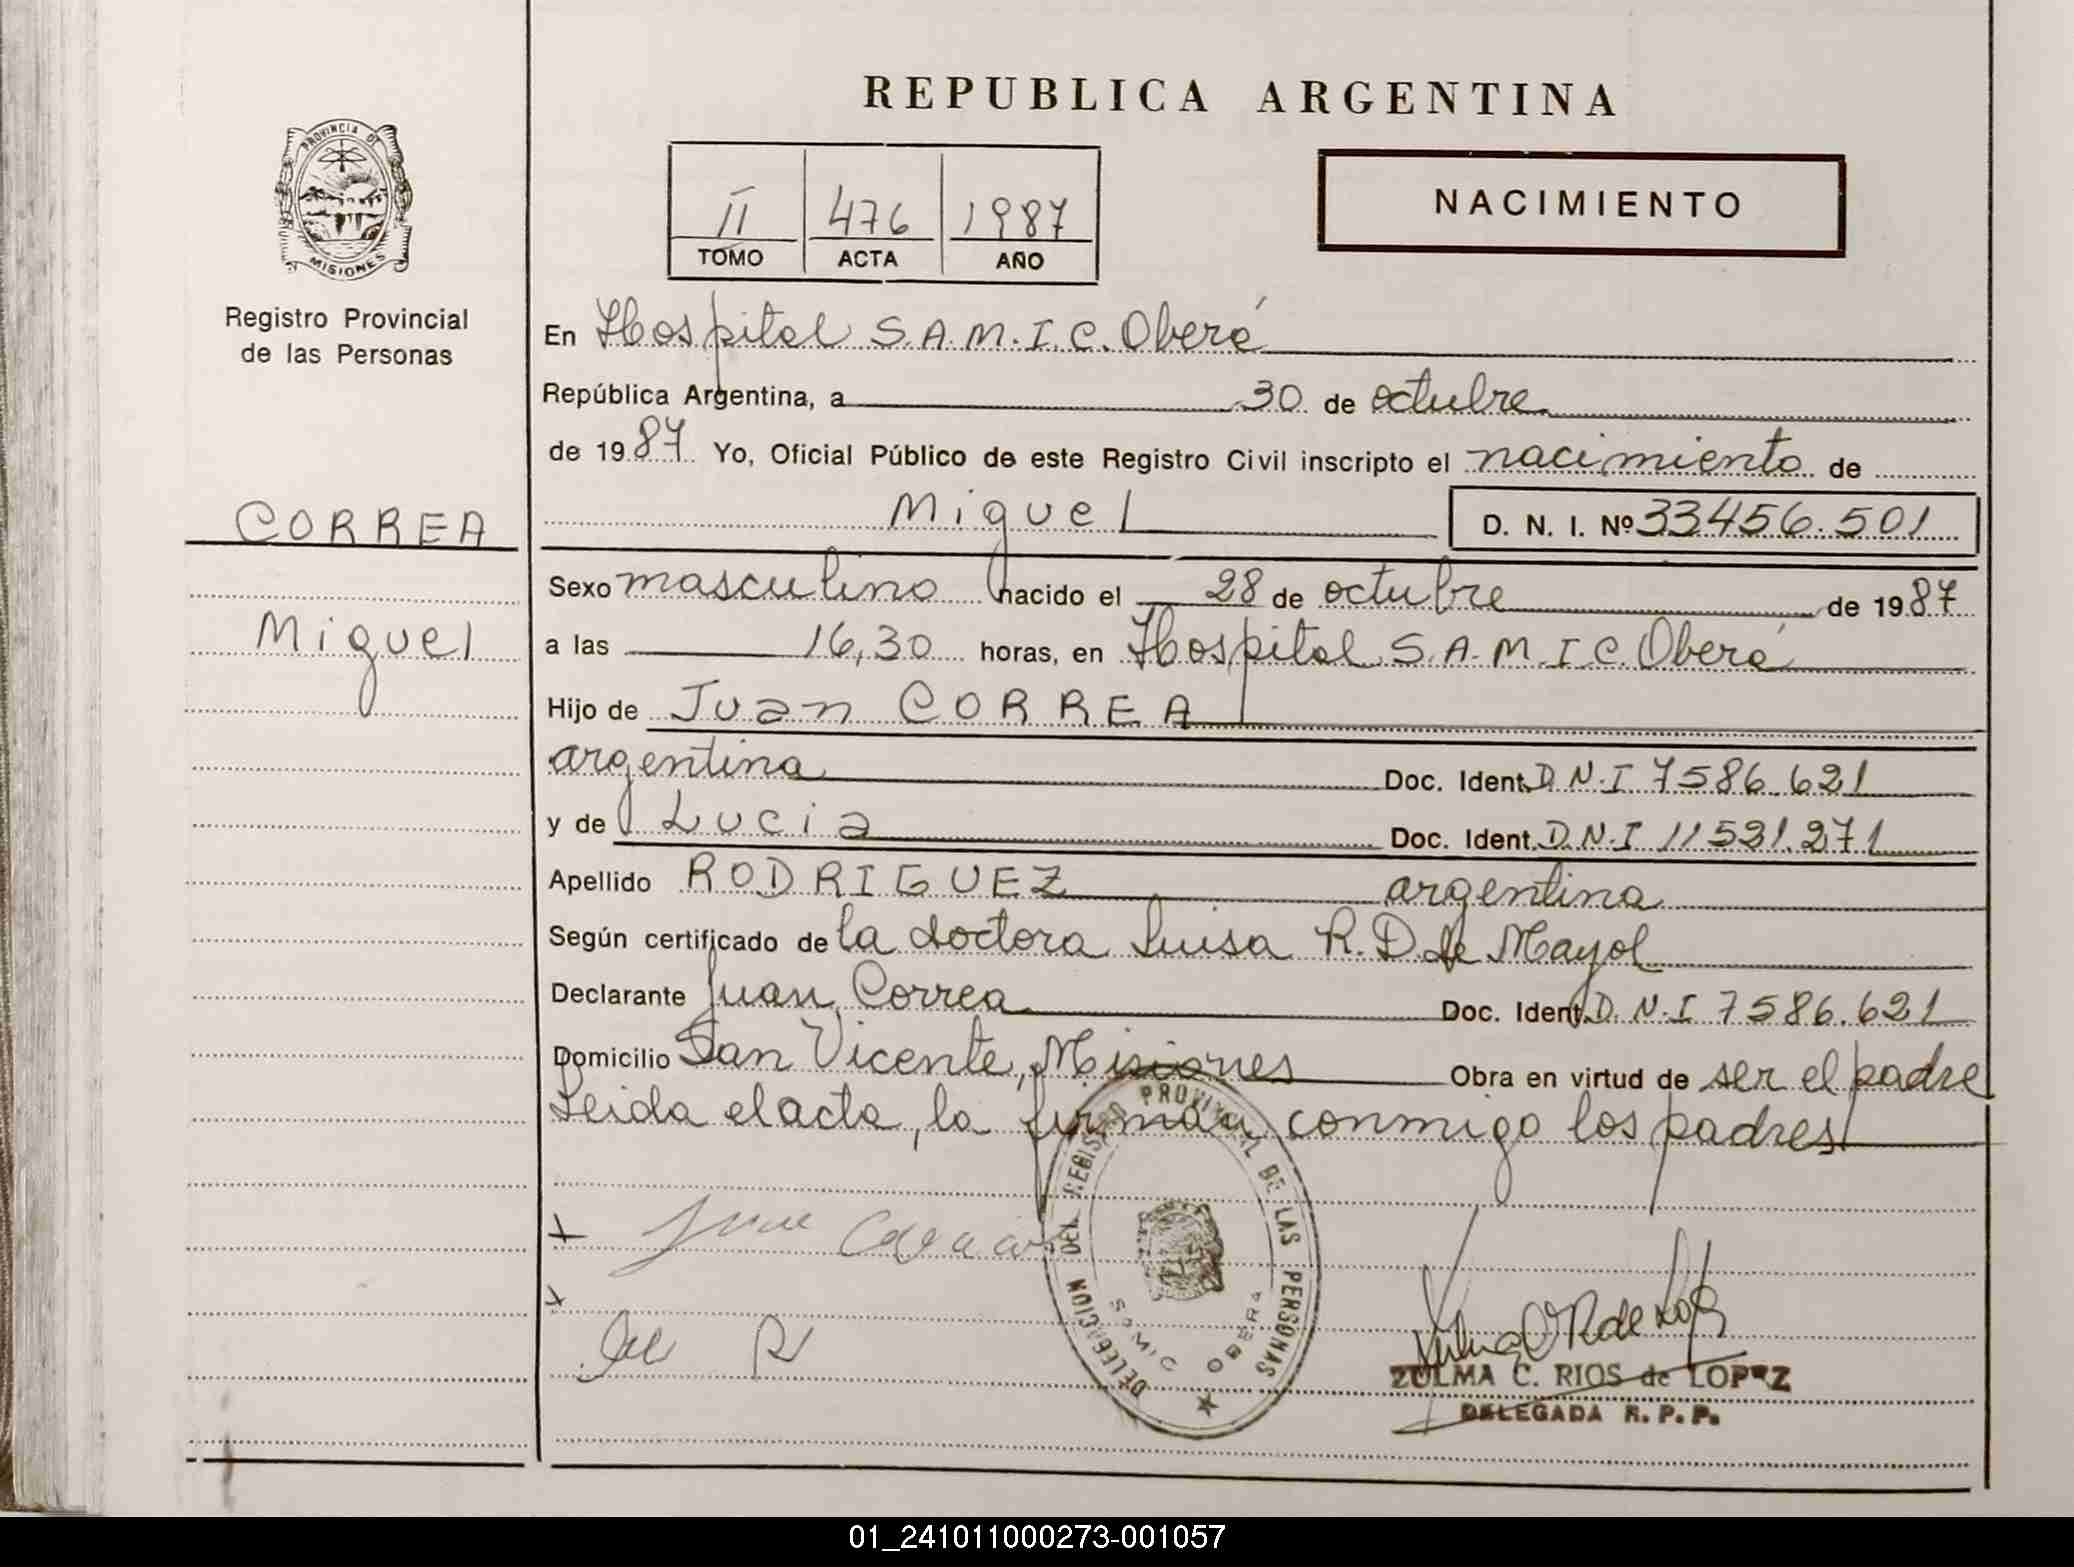 REPUBLICA ARGENTINA
PROVINCIA DE MISIONES
Registro Provincial
de las Personas
II 476 1987
TOMO ACTA AÑO
NACIMIENTO
En Hospital S.A.M.I.C. Oberá
República Argentina, a 30 de octubre
de 1987 Yo, Oficial Público de este Registro Civil inscripto el nacimiento de
Miguel D. N. I. Nº 33456.501
CORREA
Miguel
Sexo masculino nacido el 28 de octubre de 1987
a las 16,30 horas, en Hospital S.A.M.I.C. Oberá
Hijo de Juan CORREA
argentina Doc. Ident. D.N.I 7586.621
y de Lucia Doc. Ident. D.N.I 11521.271
Apellido RODRIGUEZ argentina
Según certificado de la doctora Luisa R. D. de Mayol
Declarante Juan Correa Doc. Ident. D.N.I 7586.621
Domicilio San Vicente, Misiones Obra en virtud de ser el padre
Leida el acta, la firman conmigo los padres
DELEGACION DEL REGISTRO PROVINCIAL DE LAS PERSONAS
SAMIC OBERA
ZULMA C. RIOS de LOPEZ
DELEGADA R. P. P.
01_241011000273-001057